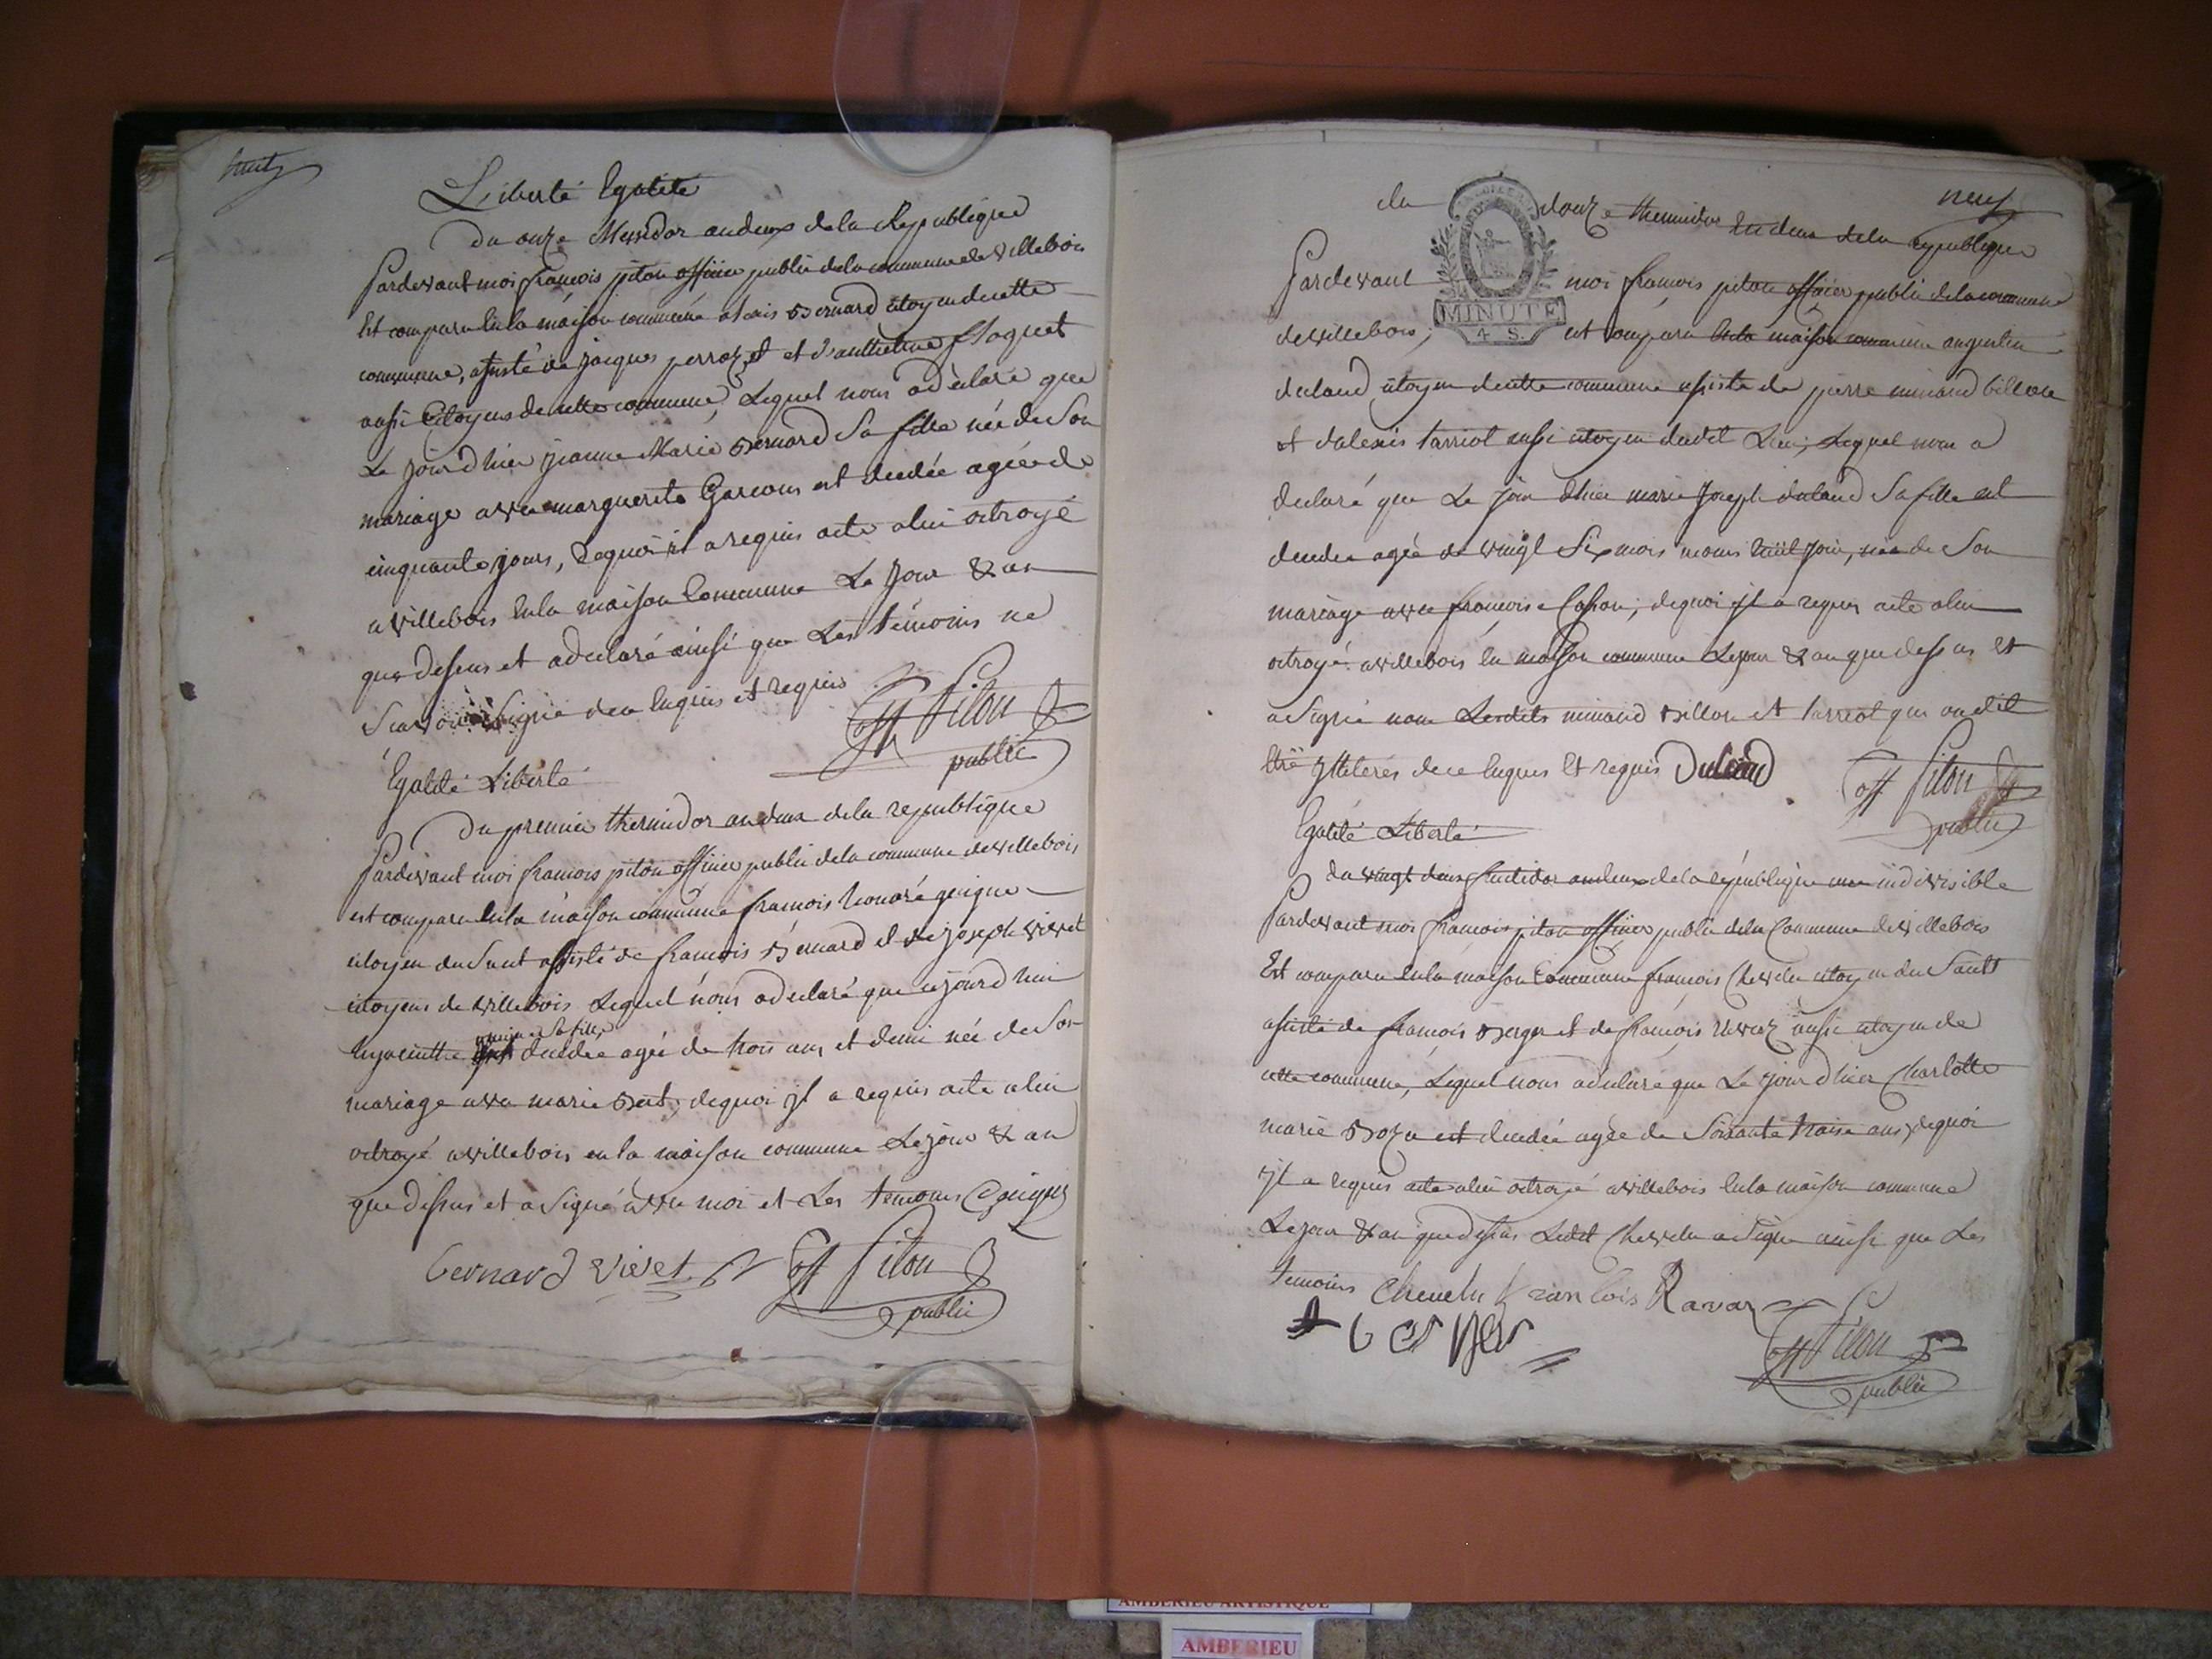 huit
Liberté Egalité
Du onze Messidor an deux de la Republique
Pardevant moi françois piton officier public de la commune de villebois
Est comparu en la maison commune alexis Bernard citoyen de cette
commune, assisté de jacques perrozet et d'anthelme floquet
aussi Citoyens de cette commune, Lequel nous a déclaré que
Le jour d'hier jeanne Marie Bernard Sa fille née de Son
mariage avec marguerite Garcons est decedée agée de
cinquante jours, dequoi il a requis acte a lui octroyé
a villebois en la maison Commune Le jour & an
que dessus et a declaré ainsi que Les témoins ne
Scavoir signé de ce enquis et requis
off Piton
public
Egalité Liberté
Du premier thermidor an deux de la republique
Pardevant moi francois piton officier public de la commune de villebois
est comparu en la maison commune francois honoré guigue
citoyen du Saut assisté de francois Bernard et de joseph vivet
citoyens de villebois Lequel nous a declaré que cejourd'hui
guigue Sa fille
hyacinthe est decedée agée de trois ans et demi née de Son
mariage avec marie Bert, dequoi jl a requis acte a lui
octroyé a villebois en la maison commune Le jour & an
que dessus et a Signé avec moi et Les temoins Guigue
bernard vivet off Piton
public
neuf
du douze thermidor an deux de la republique
Pardevant moi françois piton officier public de la commune
MINUTE
4 S.
de villebois, est comparu en la maison commune augustin
duland citoyen de cette commune assisté de pierre minaud billon
et d'alexis tarriot aussi citoyen dudit Lieu, Lequel nous a
declaré que Le jour d'hier marie Joseph duland Sa fille est
decedée agée de vingt Six mois moins huit jour, née de Son
mariage avec françoise Casson, dequoi jl a requis acte a lui
octroyé a villebois en la maison commune Le jour & an que dessus et
a Signé non Lesdits minaud Billon et tarriot qui ont dit
être jlliterés de ce enquis Et requis Duland
off Piton
public
Egalité Liberté
du vingt deux fructidor an deux de la république une indivisible
Pardevant moi françois piton officier public de la Commune de villebois
Est comparu en la maison Commune francois Chevelu citoyen du Sault
assisté de françois Berger et de françois ravaz aussi citoyen de
cette commune, Lequel nous a declaré que Le jour d'hier Charlotte
marie Bozu est decedée agée de Soixante traise ans, dequoi
jl a requis acte a lui octroyé a villebois en la maison commune
Le jour & an que dessus Ledit Chevelu a Signe ainsi que Les
temoins Chevelu francois Ravaz
berger
off Piton
public
AMBERIEU ARTISTIQUE
AMBERIEU